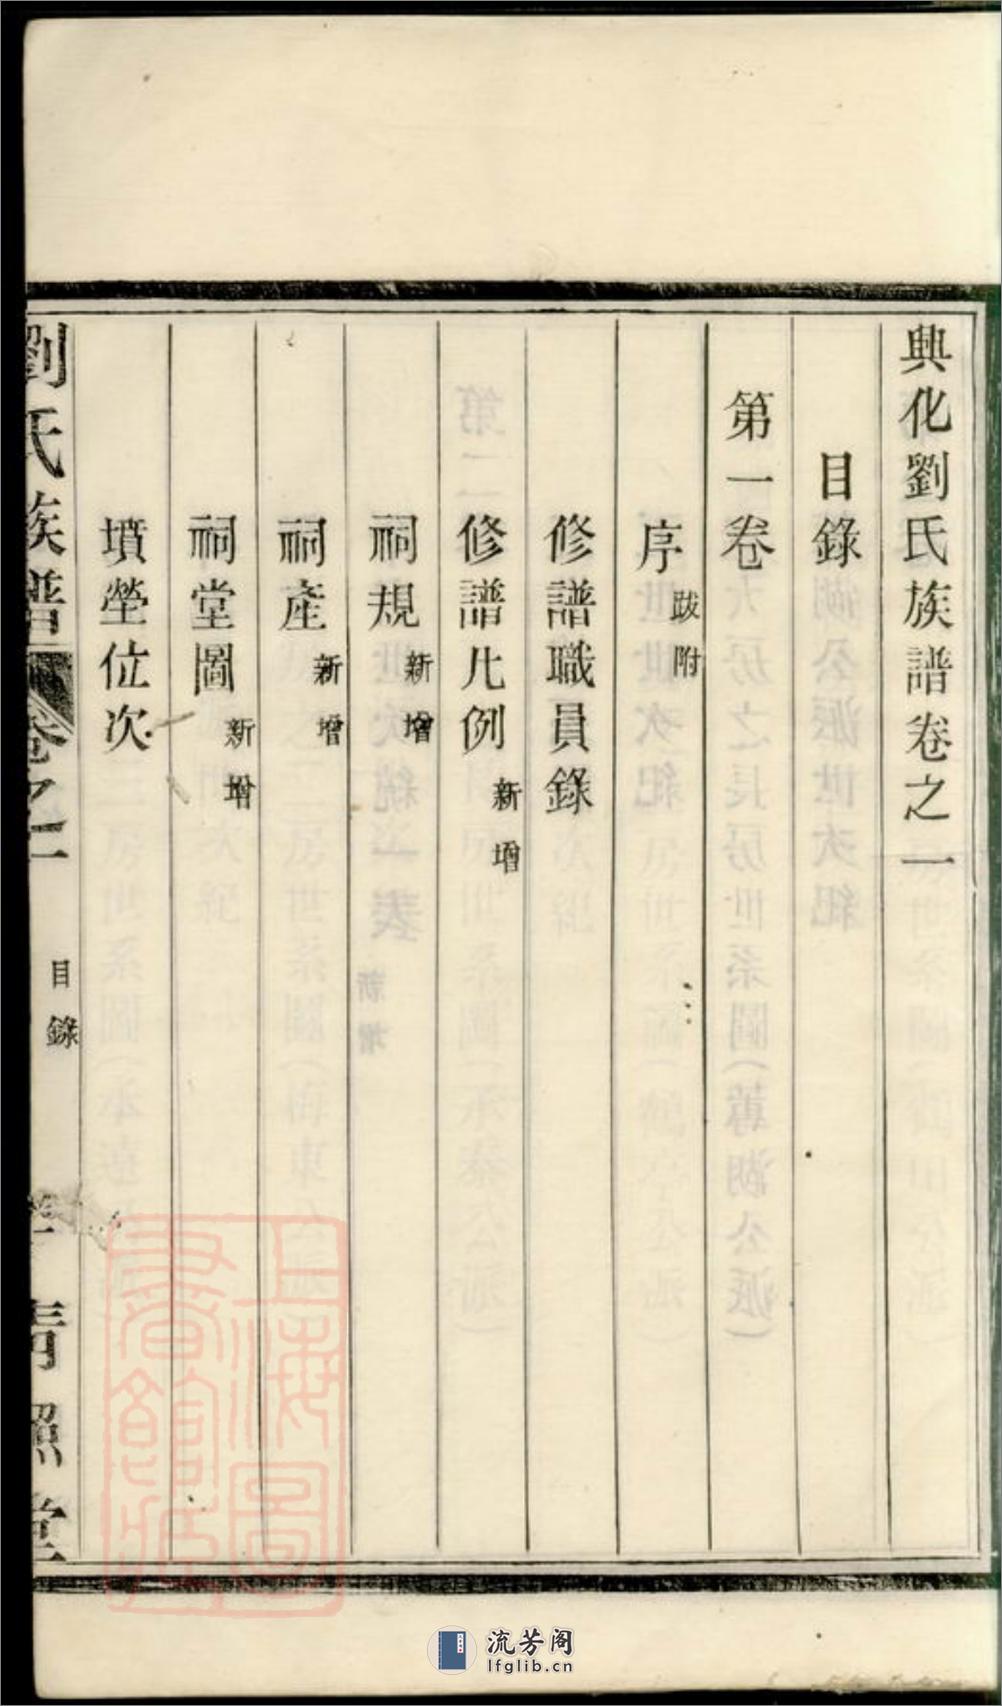 興化劉氏族譜卷之一
目錄
第一卷
序 跋附
修譜職員錄
修譜凡例 新增
祠規 新增
祠產 新增
祠堂圖 新增
墳塋位次
劉氏族譜 卷之一 目錄 一 青照堂
上海圖書館藏
流芳阁
lfglib.cn